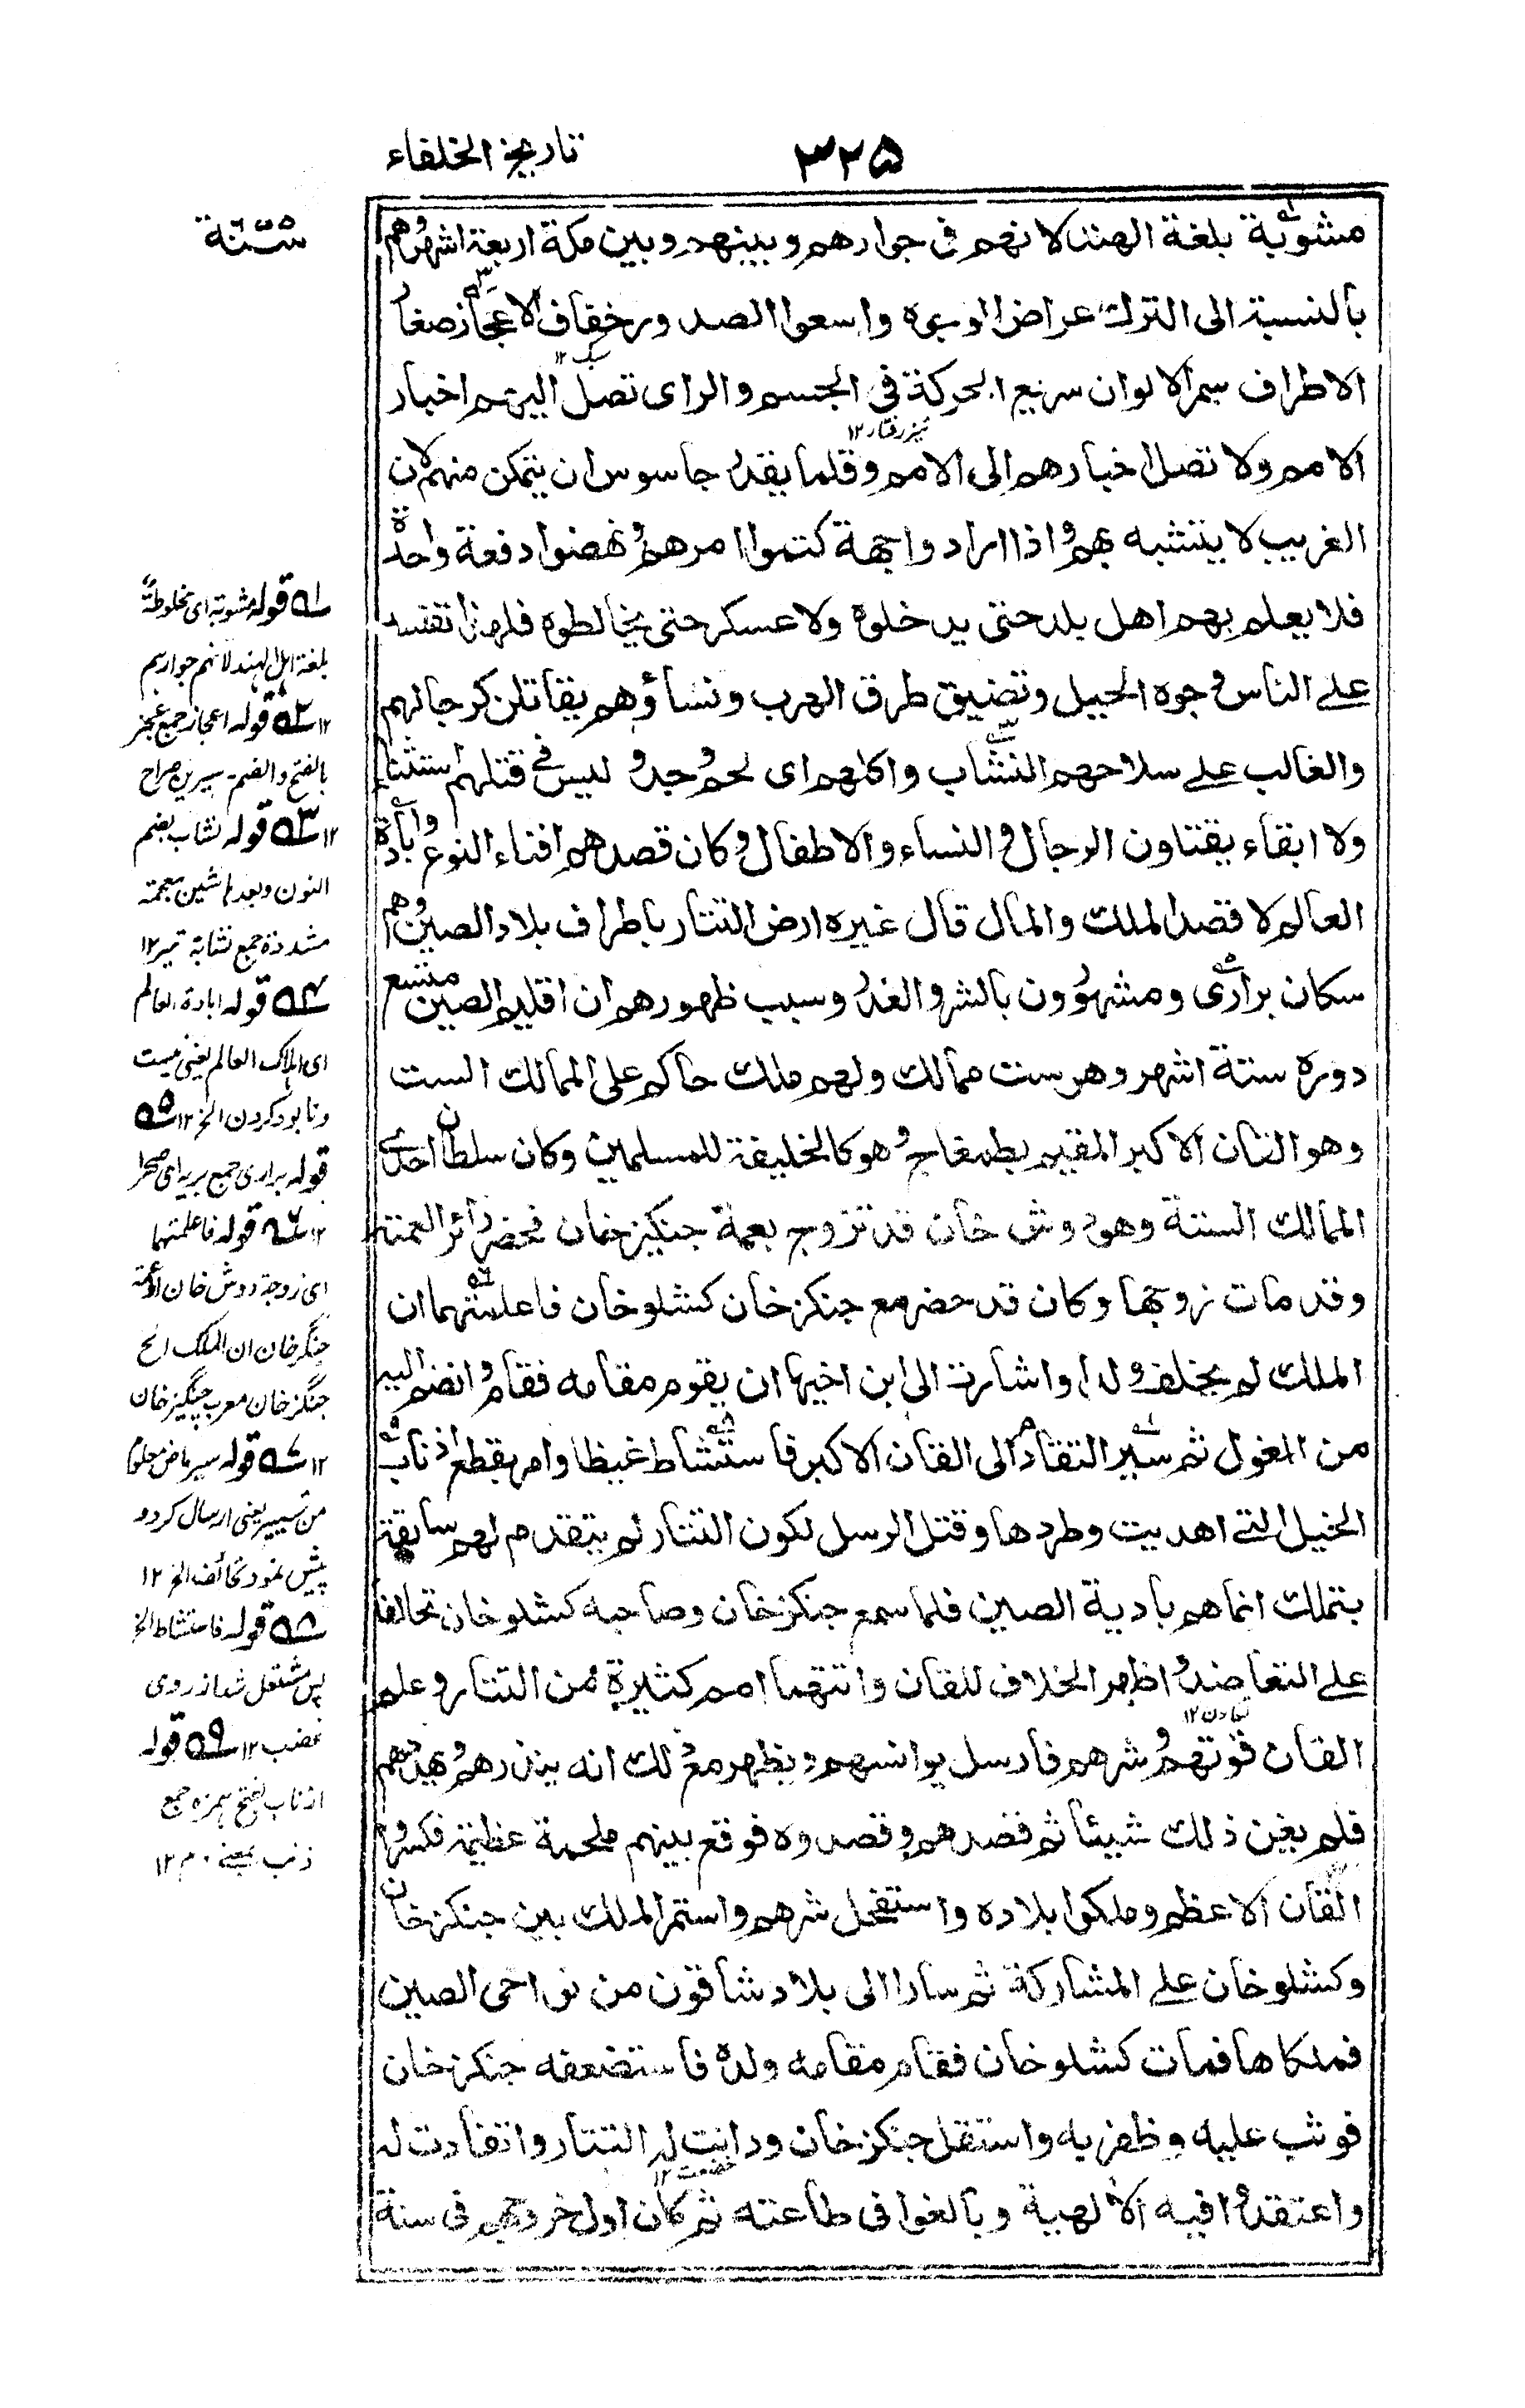 ٣٢٥
تاريخ الخلفاء
مشوبة بلغة الهند لانهم فى جوارهم وبينهم وبين مكة اربعة اشهر وهم
بالنسبة الى الترك عراض الوجوه واسعوا الصدور خفاف الاعجاز صغار
الاطراف سمر الالوان سريع الحركة فى الجسم والراى تصل اليهم اخبار
الامم ولا تصل اخبارهم الى الامم وقلما يقدر جاسوس ان يتمكن منهم لان
الغريب لا يتشبه بهم واذا ارادوا جهة كتموا امرهم ونهضوا دفعة واحدة
فلا يعلم بهم اهل بلد حتى يدخلوه ولا عسكر حتى يخالطوه فلهذا تفسد
على الناس وجوه الحيل وتضيق طرق الهرب ونساؤهم يقاتلن كرجالهم
والغالب على سلاحهم النشاب واكلهم اى لحم وجد وليس فى قتلهم استثناء
ولا ابقاء يقتلون الرجال والنساء والاطفال وكان قصدهم افناء النوع وابادة
العالم لا قصد الملك والمال قال غيره ارض التتار باطراف بلاد الصين وهم
سكان برارى ومشهورون بالشر والغدر وسبب ظهورهم ان اقليم الصين متسع
دوره ستة اشهر وهو ست ممالك ولهم ملك حاكم على الممالك الست
وهو القان الاكبر المقيم بطمغاج وهو كالخليفة للمسلمين وكان سلطان احدى
الممالك الستة وهو دوش خان قد تزوج بعمة جنكيزخان فحضر زائرا لعمته
وقد مات زوجها وكان قد حضر مع جنكزخان كشلوخان فاعلمتهما ان
الملك لم يخلف ولدا واشارت الى ابن اخيها ان يقوم مقامه فقام وانضم اليه
من المغول ثم سير التقادم الى القان الاكبر فاستشاط غيظا وامر بقطع اذناب
الخيل التى اهديت وطردها وقتل الرسل لكون التتار لم يتقدم لهم سابقة
بتملك انما هم بادية الصين فلما سمع جنكزخان وصاحبه كشلوخان تحالفا
على التعاضد واظهر الخلاف للقان واتتهما امم كثيرة من التتار وعلم
القان قوتهم وشرهم فارسل يوانسهم ويظهر مع ذلك انه ينذرهم ويهددهم
فلم يغن ذلك شيئا ثم قصدهم وقصدوه فوقع بينهم ملحمة عظيمة فكسروا
القان الاعظم وملكوا بلاده واستفحل شرهم واستمر الملك بين جنكزخان
وكشلوخان على المشاركة ثم سارا الى بلاد شاقون من نواحى الصين
فملكاها فمات كشلوخان فقام مقامه ولده فاستضعفه جنكزخان
فوثب عليه وظفر به واستقل جنكزخان ودانت له التتار وانقادت له
واعتقدوا فيه الالهية وبالغوا فى طاعته ثم كان اول خروجهم فى سنة
ستة
سبك ١٢
تيز رفتار ١٢
خضعت ١٢
١ قوله مشوبة اى مخلوطة
بلغة اهل الهند لانهم جوارهم
١٢ ٢ قوله اعجاز جمع عجز
بالفتح والضم ـ سيرين صراح
١٢ ٣ قوله نشاب بضم
النون وبعدها شين معجمة
مشددة جمع نشابة تير ١٢
٤ قوله ابادة العالم
اى اهلاك العالم يعنى نيست
ونابود كردن الخ ١٢ ٥
قوله برارى جمع بريه اى صحرا
١٢ ٦ قوله فاعلمتهما
اى زوجة دوش خان
جنگز خان ان الملك الخ
جنگز خان معرب چنگيز خان
١٢ ٧ قوله سير ماض معلوم
من تسيير يعنى ارسال كرد و
پيش نمود تحائف الخ ١٢
٨ قوله فاستشاط الخ
پس مشتعل شد از روى
غضب ١٢ ٩ قوله
اذناب بفتح همزه جمع
ذنب بمعنى دم ١٢